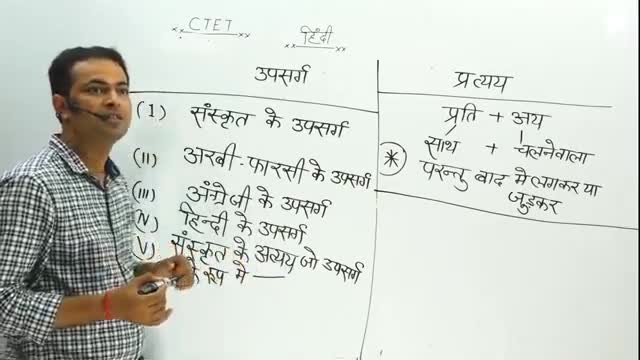 CTET
हिंदी
उपसर्ग
(I) संस्कृत के उपसर्ग
(II) अरबी-फारसी के उपसर्ग
(III) अंग्रेजी के उपसर्ग
IV) हिन्दी के उपसर्ग
(V) संस्कृत के अव्यय जो उपसर्ग
के रूप मे —
प्रत्यय
प्रति + अय
साथ + चलनेवाला
* परन्तु बाद मे लगकर या
जुड़कर